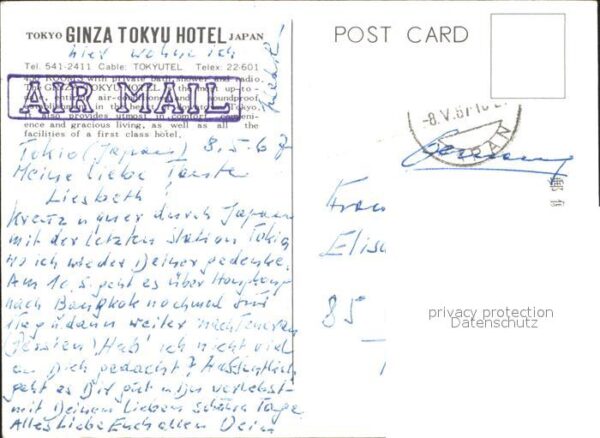 TOKYO GINZA TOKYU HOTEL JAPAN
hier wohne ich
Tel. 541-2411 Cable: TOKYUTEL Telex: 22-601
ROOMS with private bath, shower and radio.
The GINZA TOKYU HOTEL the most up-to-
air- soundproof,
in the Tokyo.
It also provides utmost in comfort, conveni-
ence and gracious living, as well as all the
facilities of a first class hotel.
AIR MAIL
Tokio (Japan) 8.5.67
Meine liebe Tante
Liesbeth!
Kreuz u quer durch Japan
mit der letzten Station Tokio
wo ich wieder Deiner gedenke.
Am 10.5. geht es über Hongkong
nach Bangkok nochmal für
Tage u. dann weiter nach Teheran
(Persien) Hab' ich nicht viel
an Dich gedacht? Hoffentlich
geht es Dir gut u Du verlebst
mit Deinen Lieben schöne Tage
Alles Liebe Euch allen Dein
POST CARD
-8.V.67
Germany
Frau
Elis
85
privacy protection
Datenschutz